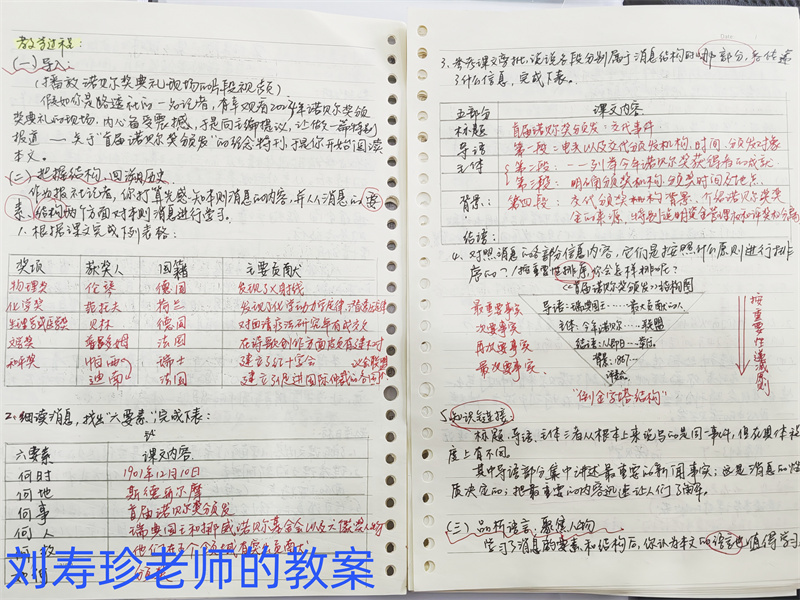 教学过程:
(一)导入:
(播放诺贝尔奖典礼现场的片段视频)
假如你是路透社的一名记者,有幸观看
奖典礼的现场,内心备受震撼,于是向主编提议,让做一篇特别
报道——关于"首届诺贝尔奖颁发"的纪念特刊,于是你开始阅读
本文。
(二)把握结构,回溯历史
作为报社记者,你打算先感知本则消息的内容,并从消息的要
素、结构两个方面对本则消息进行学习。
1.根据课文完成下列表格:
奖项 获奖人 国籍 主要贡献
物理奖 伦琴 德国 发现了X射线
化学奖 范托夫 荷兰 发现了化学动力学定律
贝林 德国 对血清疗法研究
文学奖 法国 在诗歌创作方面
和平奖 帕西 法国
迪南 瑞士 建立了红十字会
2.细读消息,找出"六要素",完成下表:
六要素 课文内容
何时 1901年12月10日
何地 斯德哥尔摩
何事 首届诺贝尔奖颁发
何人 瑞典国王和挪威诺贝尔基金会以及六位获奖人物
刘寿珍老师的教案
3.参考课文旁批,说说各段分别属于消息结构的哪部分,各传递
了什么信息,完成下表。
五部分 课文内容
标题 首届诺贝尔奖颁发:交代事件
导语 第一段:电头以及交代颁发机构、时间、颁发对象
主体 第二段:一一列举今年诺贝尔奖获得者的成就
第三段:明确颁奖机构、颁奖时间及地点
背景: 第四段:交代颁奖机构背景,介绍诺贝尔奖奖
金的来源,特别说明资金管理权和评奖权分离
结语:
4.对照消息的各部分信息内容,它们是按照什么原则进行排
序的?(按重要性排序)你会怎样排呢?
《首届诺贝尔奖颁发》结构图
最重要事实 导语:瑞典国王……最大贡献的人
次要事实 主体:今年诺贝尔……联盟
再次要事实
最次要事实 背景:1867…
按重要性递减原则
"倒金字塔结构"
5.知识链接:
标题、导语、主体三者从根本上来说写的是同一事件,但在具体程
度上有不同。
其中导语部分集中讲述最重要的新闻事实;这是消息的性
质决定的:把最重要的内容迅速让人们了解。
(三)品析语言,聚焦人物
学习了消息的要素和结构后,你认为本文的语言也值得学习